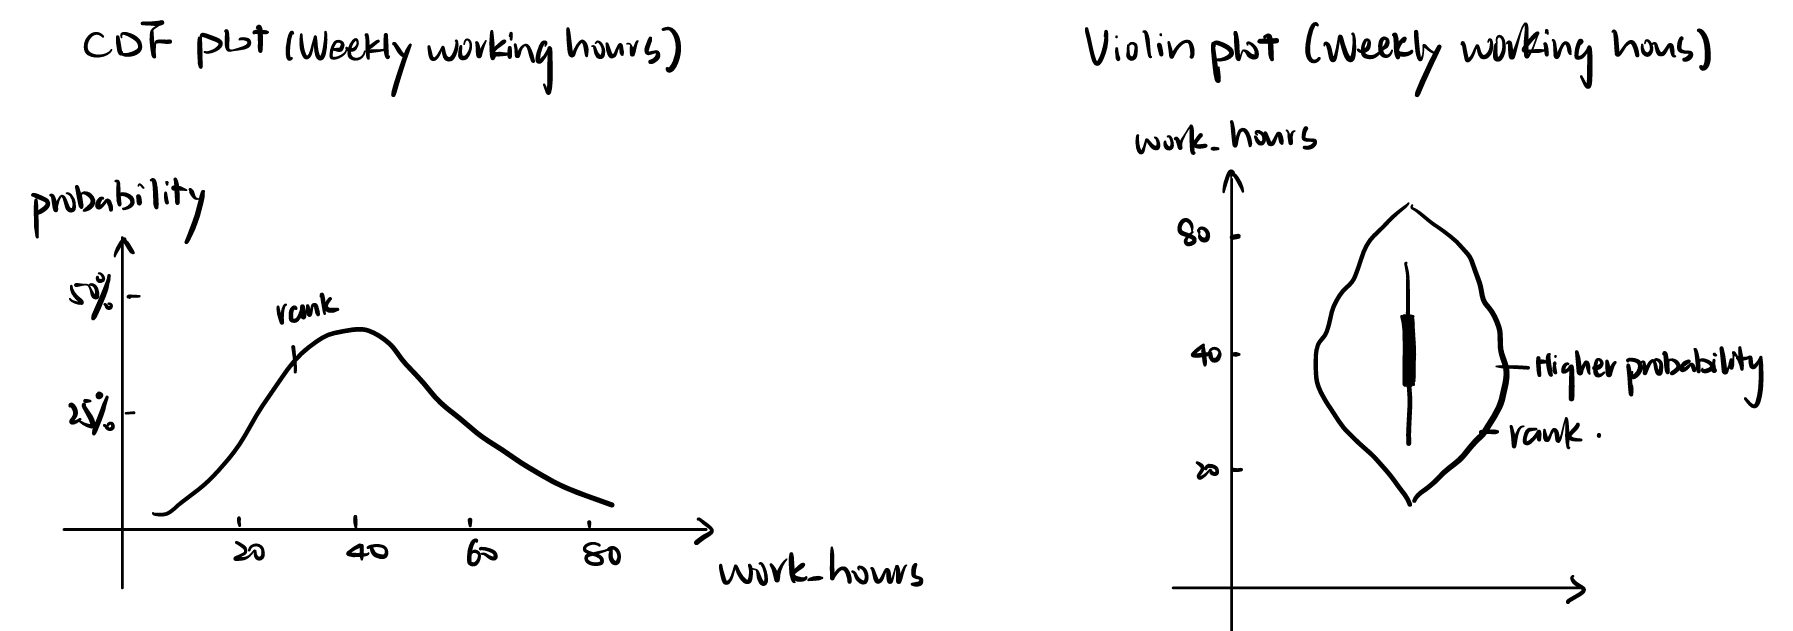 CDF plot (Weekly working hours)
probability
50%
25%
rank
20 40 60 80
work_hours
Violin plot (Weekly working hous)
work_hours
80
40
20
Higher probability
rank.